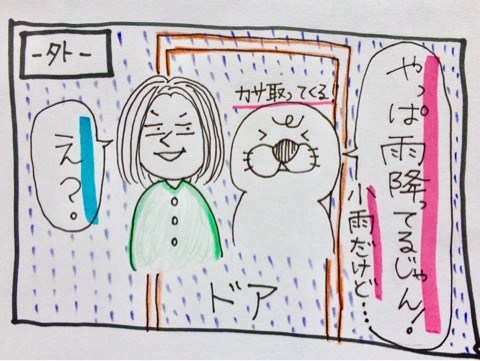 -外-
やっぱ雨降ってるじゃん!
小雨だけど…
カサ取ってくる!
え?。
ドア